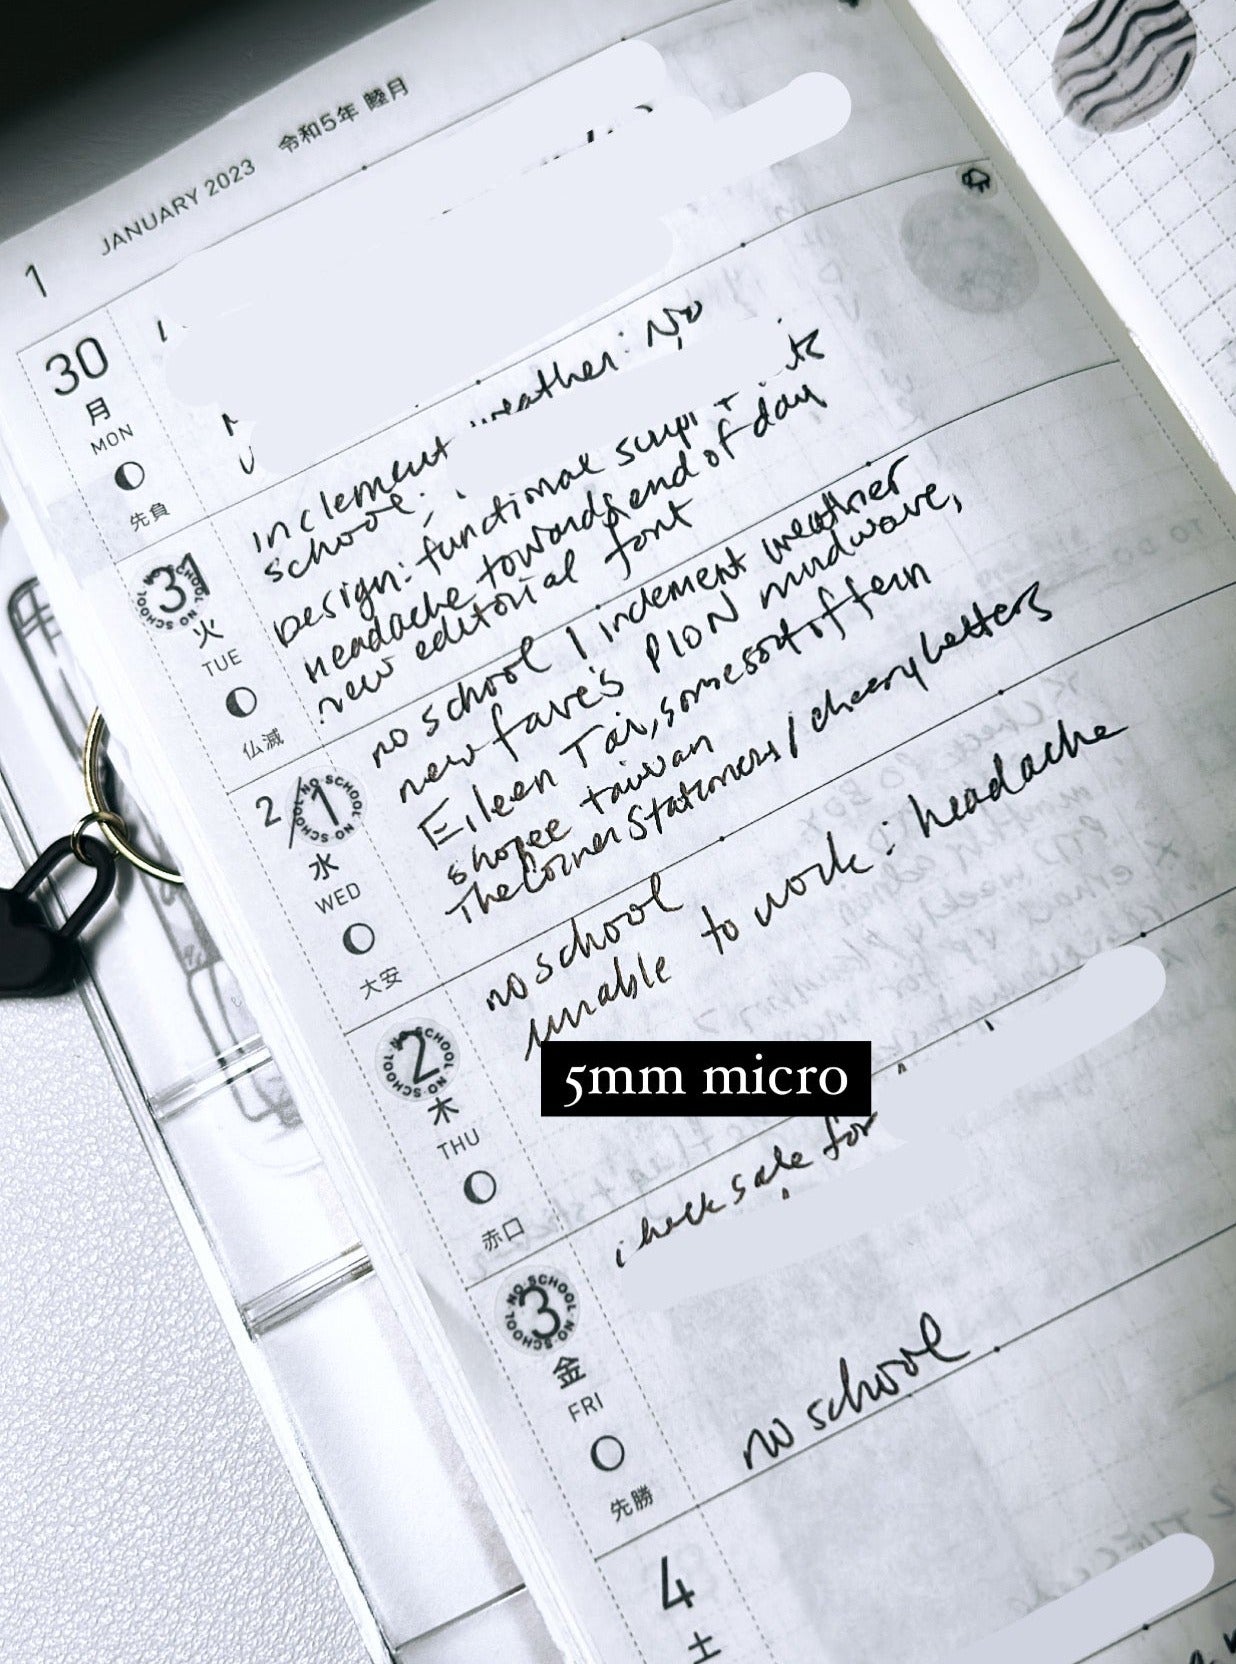 1 JANUARY 2023 令和5年 睦月
30
月
MON
先負
inclement weather: No
school;
Design: functional script
headache towards end of day
new editorial font
NO SCHOOL NO SCHOOL
31
火
TUE
仏滅
no school / inclement weather
new fave's PION mindwave,
Eileen Tai, some sort of fern
shopee taiwan
The Corner Stationers / cherry betters
2 1
NO SCHOOL NO SCHOOL
水
WED
大安
no school
unable to work: headache
5mm micro
2
NO SCHOOL NO SCHOOL
木
THU
赤口
check sale for
3
NO SCHOOL NO SCHOOL
金
FRI
先勝
no school
4
土
TO DO